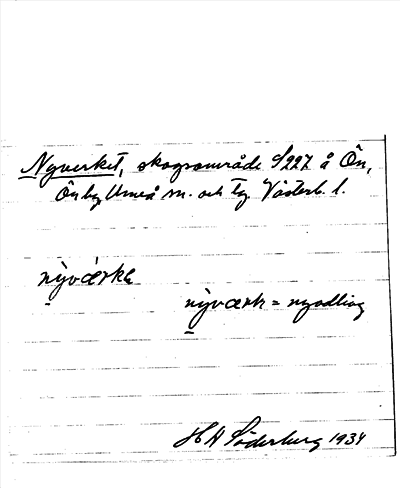 Nyverket, skogsområde S/227 å Ön,
Önby, Umeå sn. och tg. Västerb. l.
nỳvǽrke
nỳværk = nyodling
HA Söderberg 1934